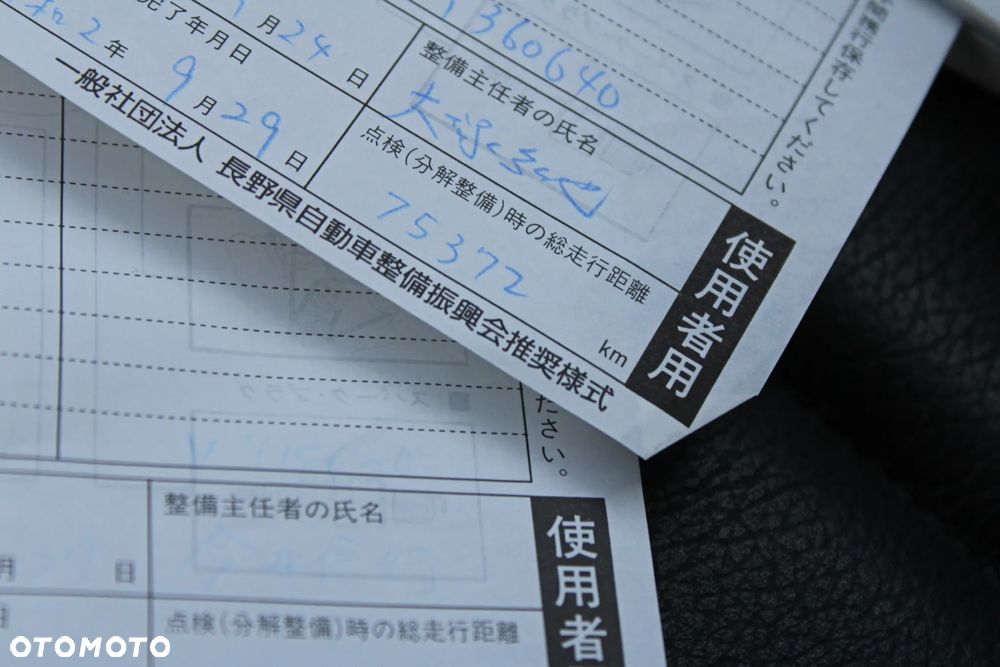 間携行保存してください。
1360640
月24日
完了年月日
和2年9月29日
整備主任者の氏名
点検(分解整備)時の総走行距離
75372
km
使用者用
一般社団法人 長野県自動車整備振興会推奨様式
ださい。
スパーク・プラグ
整備主任者の氏名
月 日
点検(分解整備)時の総走行距離
使用者
OTOMOTO